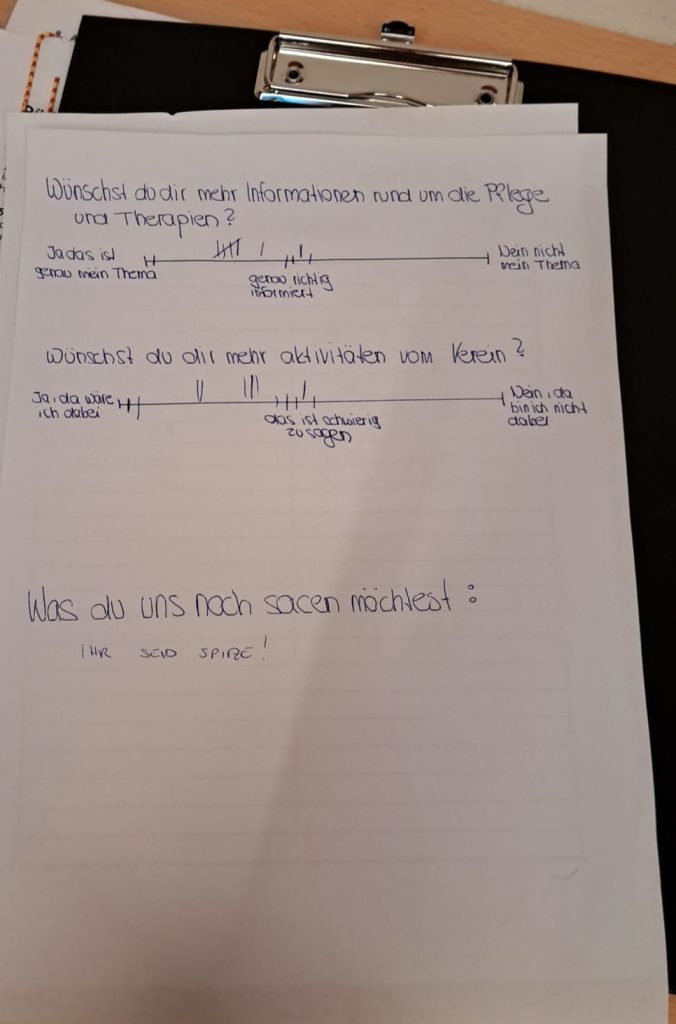 Wünschst du dir mehr Informationen rund um die Pflege
und Therapien?
Ja das ist
genau mein Thema
genau richtig
informiert
Nein nicht
mein Thema
Wünschst du dir mehr aktivitäten vom Verein?
Ja, da wäre
ich dabei
das ist schwierig
zu sagen
Nein, da
bin ich nicht
dabei
Was du uns noch sacen möchtest:
IHR SEID SPITZE!